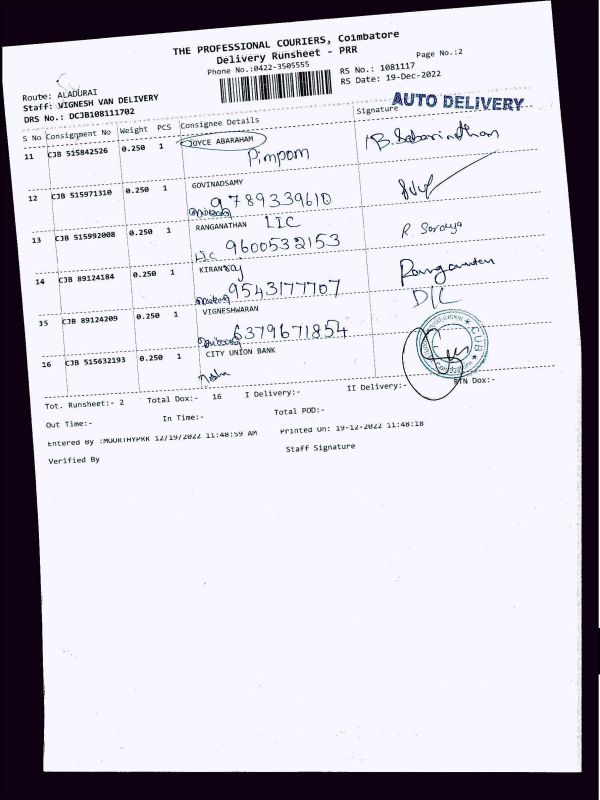 THE PROFESSIONAL COURIERS, Coimbatore
Delivery Runsheet - PRR
Phone No.:0422-3505555
Page No.:2
RS No.: 1081117
RS Date: 19-Dec-2022
Route: ALADURAI
Staff: VIGNESH VAN DELIVERY
DRS No.: DCJB108111702
AUTO DELIVERY
S No Consignment No Weight PCS Consignee Details Signature
11 CJB 515842526 0.250 1 JOYCE ABARAHAM
Pimpom
B. Sabarinathan
12 CJB 515971310 0.250 1 GOVINADSAMY
9789339610
13 CJB 515992008 0.250 1 RANGANATHAN LIC
Lic 9600532153
R Saraya
14 CJB 89124184 0.250 1 KIRANraj
9543177707
15 CJB 89124209 0.250 1 VIGNESHWARAN
6379671854
16 CJB 515632193 0.250 1 CITY UNION BANK
C.U.B
Tot. Runsheet:- 2 Total Dox:- 16 I Delivery:- II Delivery:- RTN Dox:-
Out Time:- In Time:- Total POD:-
Entered By :MOORTHYPRR 12/19/2022 11:48:59 AM Printed On: 19-12-2022 11:48:18
Verified By Staff Signature